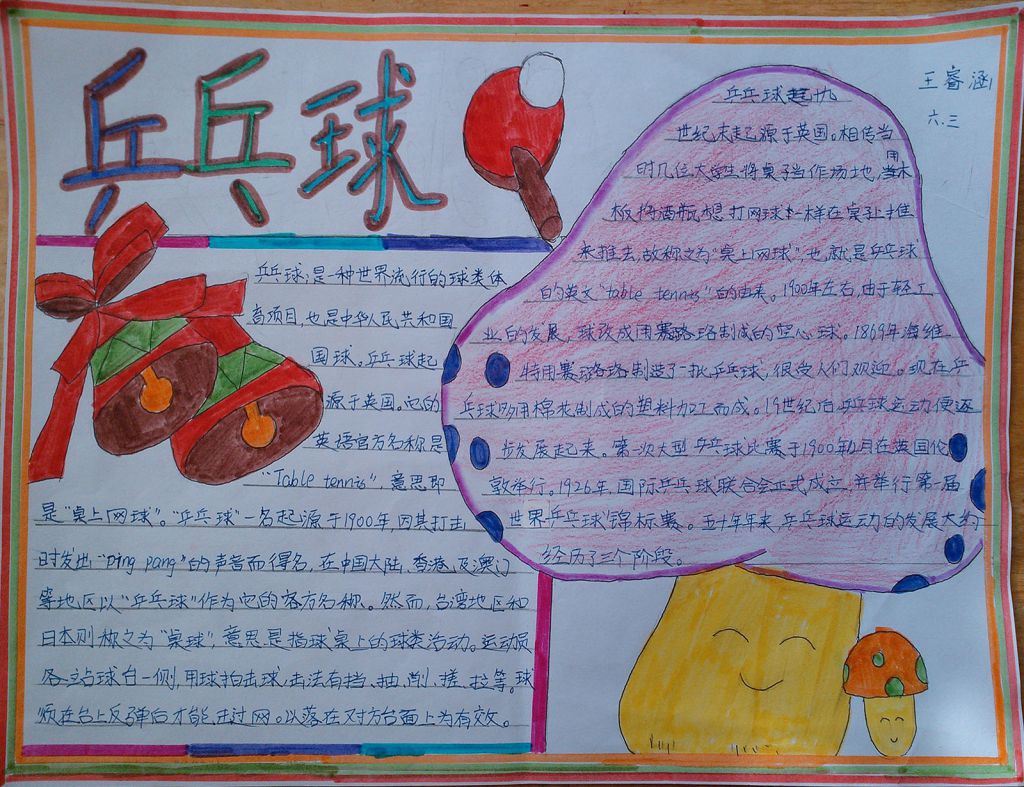 乒乓球
王睿涵
六.三
乒乓球,是一种世界流行的球类体
育项目,也是中华人民共和国
国球。乒乓球起
源于英国。它的
英语官方名称是
"Table tennis",意思即
是"桌上网球"。"乒乓球"一名起源于1900年,因其打击
时发出"ping pang"的声音而得名,在中国大陆、香港、及澳门
等地区以"乒乓球"作为它的官方名称。然而,台湾地区和
日本则称之为"桌球",意思是指球桌上的球类活动。运动员
各站球台一侧,用球拍击球,击法有挡、抽、削、搓、拉等。球
须在台上反弹后才能击过网。以落在对方台面上为有效。
乒乓球起九
世纪末起源于英国。相传当
时几位大学生将桌子当作场地,用木
板将酒瓶想打网球一样在桌子上推
来推去,故称之为"桌上网球",也就是乒乓球
的英文"table tennis"的由来。1900年左右,由于轻工
业的发展,球改成用赛璐珞制成的空心球。1869年海维
特用赛璐珞制造了一批乒乓球,很受人们欢迎。现在乒
乓球多用棉花制成的塑料加工而成。19世纪后乒乓球运动便逐
步发展起来。第一次大型乒乓球比赛于1900年12月在英国伦
敦举行。1926年,国际乒乓球联合会正式成立,并举行第一届
世界乒乓球锦标赛。五十年年来,乒乓球运动的发展大约
经历了三个阶段。